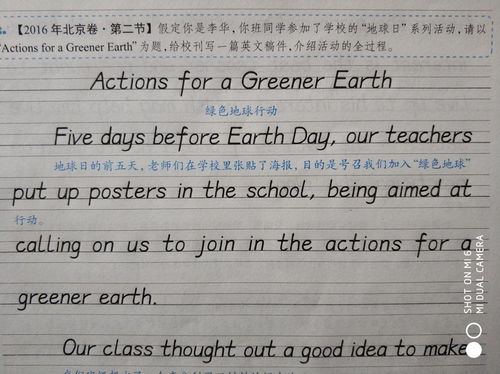 【2016年北京卷·第二节】假定你是李华,你班同学参加了学校的“地球日”系列活动,请以
“Actions for a Greener Earth”为题,给校刊写一篇英文稿件,介绍活动的全过程。
Actions for a Greener Earth
绿色地球行动
Five days before Earth Day, our teachers
地球日的前五天,老师们在学校里张贴了海报,目的是号召我们加入“绿色地球”
put up posters in the school, being aimed at
行动。
calling on us to join in the actions for a
greener earth.
Our class thought out a good idea to make
SHOT ON MI 6
MI DUAL CAMERA